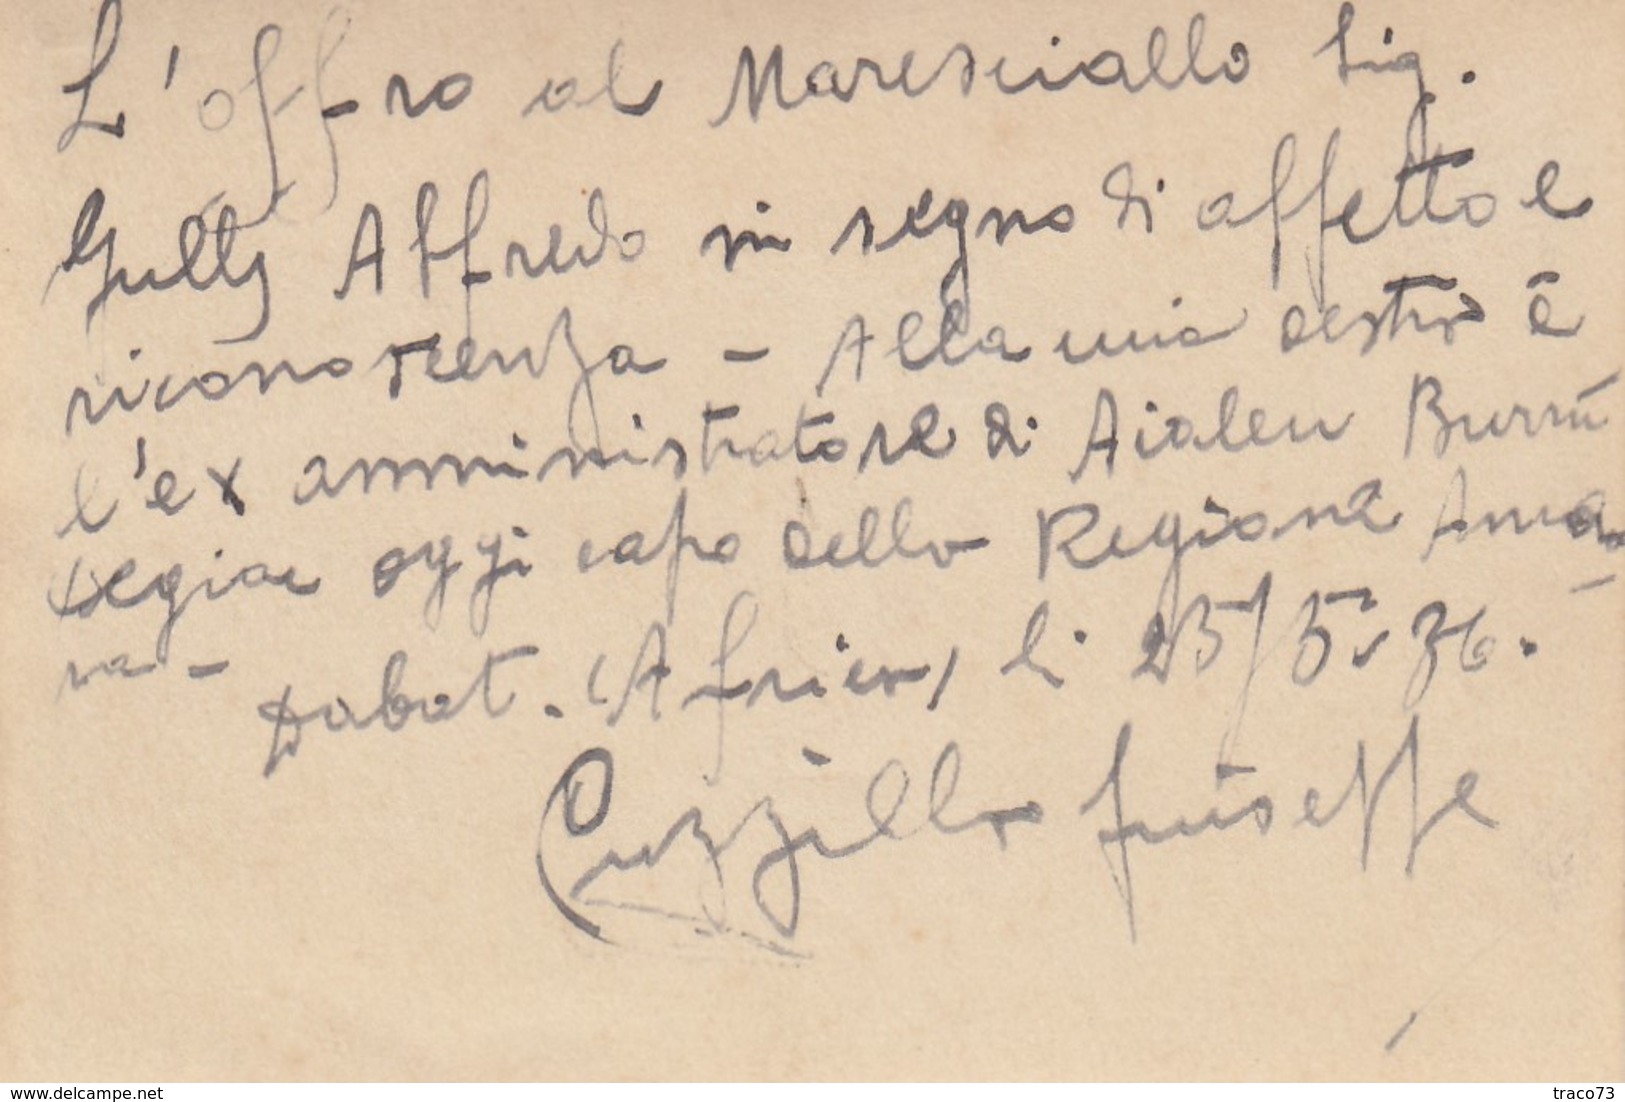 L'offro al Maresciallo Sig.
Gully Alfredo in segno di affetto e
riconoscenza - Alla mia destra è
l'ex amministratore di Aialeu Burrù
Degiac oggi capo della Regione Amà
ra -
Dabat. (Africa, li 25/5° 36.
Cuzzillo Giuseppe
www.delcampe.net
traco73